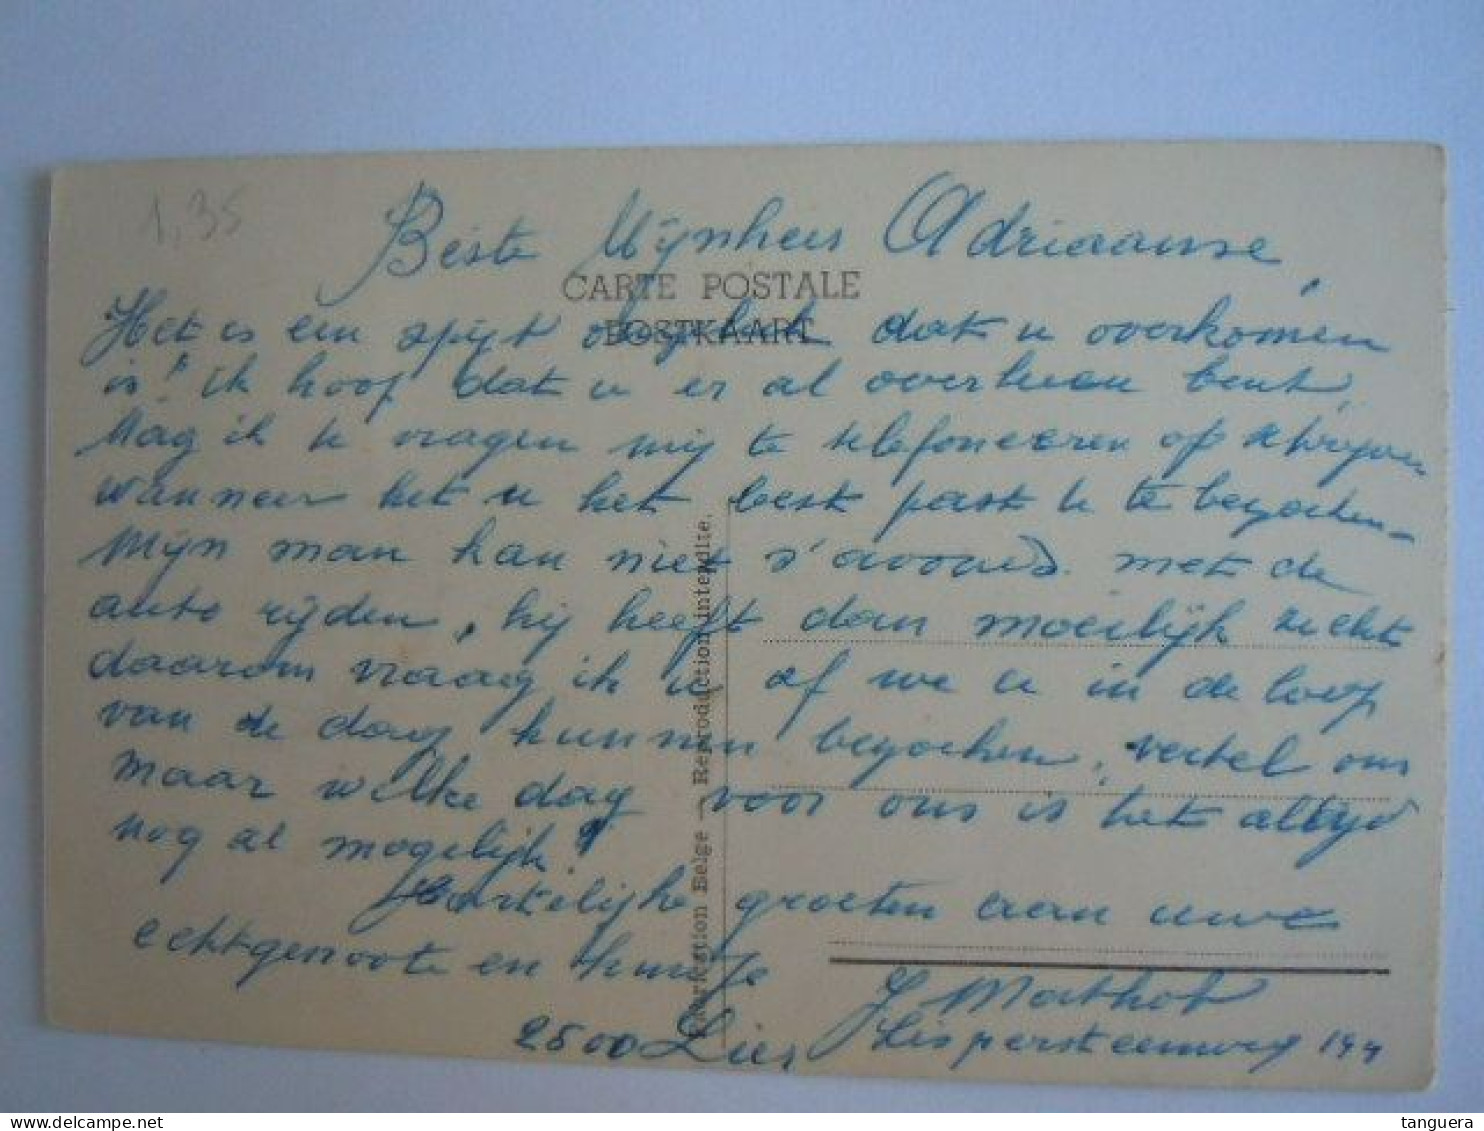 1,35
Beste Mijnheer Adriaanse,
CARTE POSTALE
POSTKAART
Het is een spijt dat u overkomen
is! ik hoop dat u er al overheen bent,
Mag ik u vragen mij te telefoneeren of schrijven
wanneer het u het best past u te bezoeken -
Mijn man kan niet s'avonds met de
auto rijden, hij heeft dan moeilijk zicht
daarom vraag ik u of we u in de loop
van de dag kunnen bezoeken, vertel ons
maar welke dag voor ons is het altijd
nog al mogelijk!
Hartelijke groeten aan uwe
echtgenoote en
J Mathot
2500 Lier Lispersteenweg 194
Fabrication Belge — Reproduction interdite.
tanguera